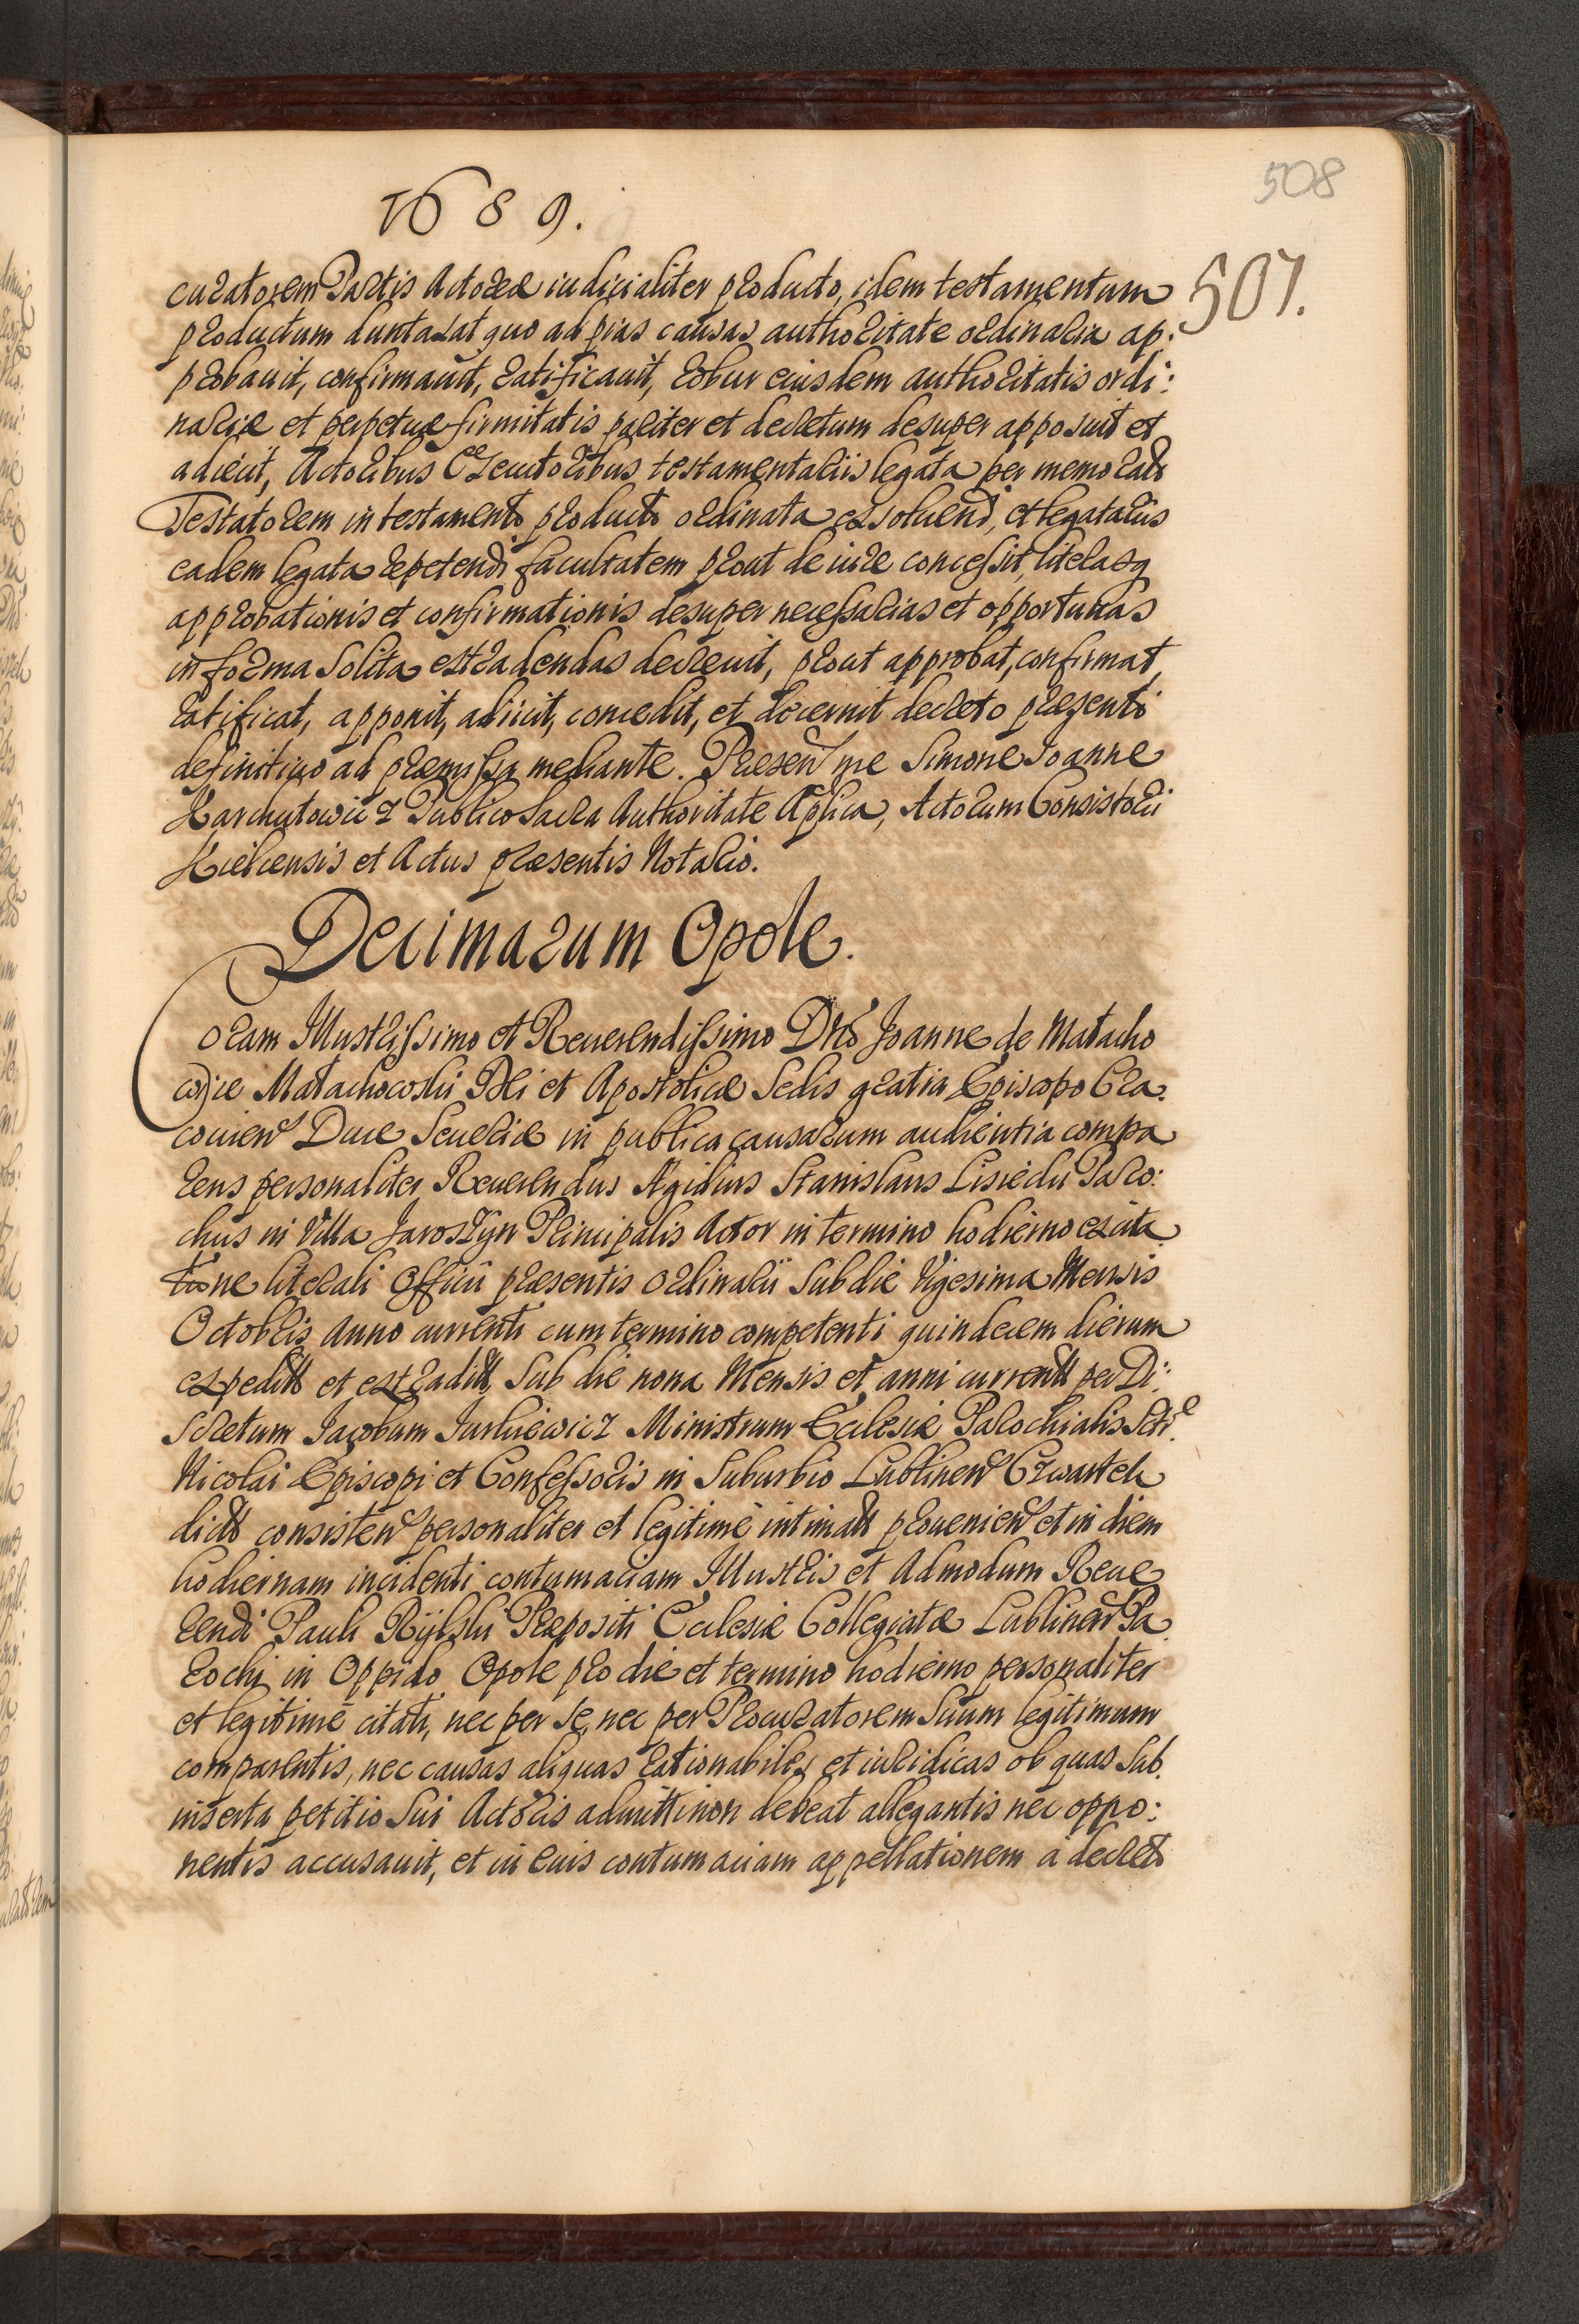 508
1689.
507.
curatorem Partis Actoreæ iudicialiter producto, idem testamentum
productum duntaxat quo ad pias causas authoritate ordinaria ap:
probauit, confirmauit, ratificauit, robur eiusdem authoritatis ordi:
nariæ et perpetuæ firmitatis pariter et decretum desuper apposuit et
adiecit, Actoribus Executoribus testamentariis legata per memorato
Testatorem in testamento producto ordinata exsoluendi, et legatariis
eadem legata repetendi facultatem prout de iure concessit, literasq
approbationis et confirmationis desuper necessarias et opportunas
in forma solita extradendas decreuit, prout approbat, confirmat,
ratificat, apponit, adiicit, concedit, et decernit decreto præsenti
definitiuo ad præmissa mediante. Præsen me Simone Joanne
Karchutowicz Publico Sacra Authoritate Aplica, Actorum Consistorii
Kielcensis et Actus præsentis Notario.
Decimarum Opole.
Coram Illustrissimo et Reuerendissimo Dno Joanne de Małacho
wice Małachowski Dei et Apostolicæ Sedis gratia Episcopo Cra.
couien Duce Seueriæ in publica causarum audientia compa
rens personaliter Reuerendus Ægidius Stanislaus Lisiecki Paro:
chus in Villa Jaroszyn Principalis Actor in termino hodierno ex cita
tione literali Officii præsentis Ordinarii sub die Vigesima Mensis
Octobris Anno currenti cum termino competenti quindecem dierum
expedita et extradita, sub die nona Mensis et anni currentis per Di:
scretum Jacobum Jurkiewicz Ministrum Eclesiæ Parochialis Scti
Nicolai Episcopi et Confessoris in Suburbio Lublinen Czwartek
dicto consisten personaliter et legitime intimata prouenien et in diem
hodiernam incidenti contumaciam Illustris et Admodum Reue
rendi Pauli Rylski Præpositi Eclesiæ Collegiatæ Lublinen Pa
rochi in Oppido Opole pro die et termino hodierno personaliter
et legitime citati, nec per se, nec per Procuratorem suum legitimum
comparentis, nec causas aliquas rationabiles et iuridicas ob quas sub
inserta petitio sui Actoris admitti non debeat allegantis nec oppo:
nentis accusauit, et in eius contumaciam appellationem a decreto